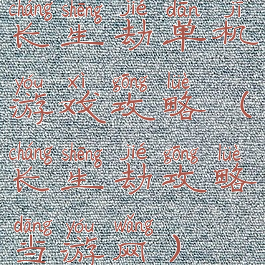 cháng shēng jié dān jī
长生劫单机
yóu xì gōng lüè
游戏攻略（
cháng shēng jié gōng lüè
长生劫攻略
dāng yóu wǎng
当游网）